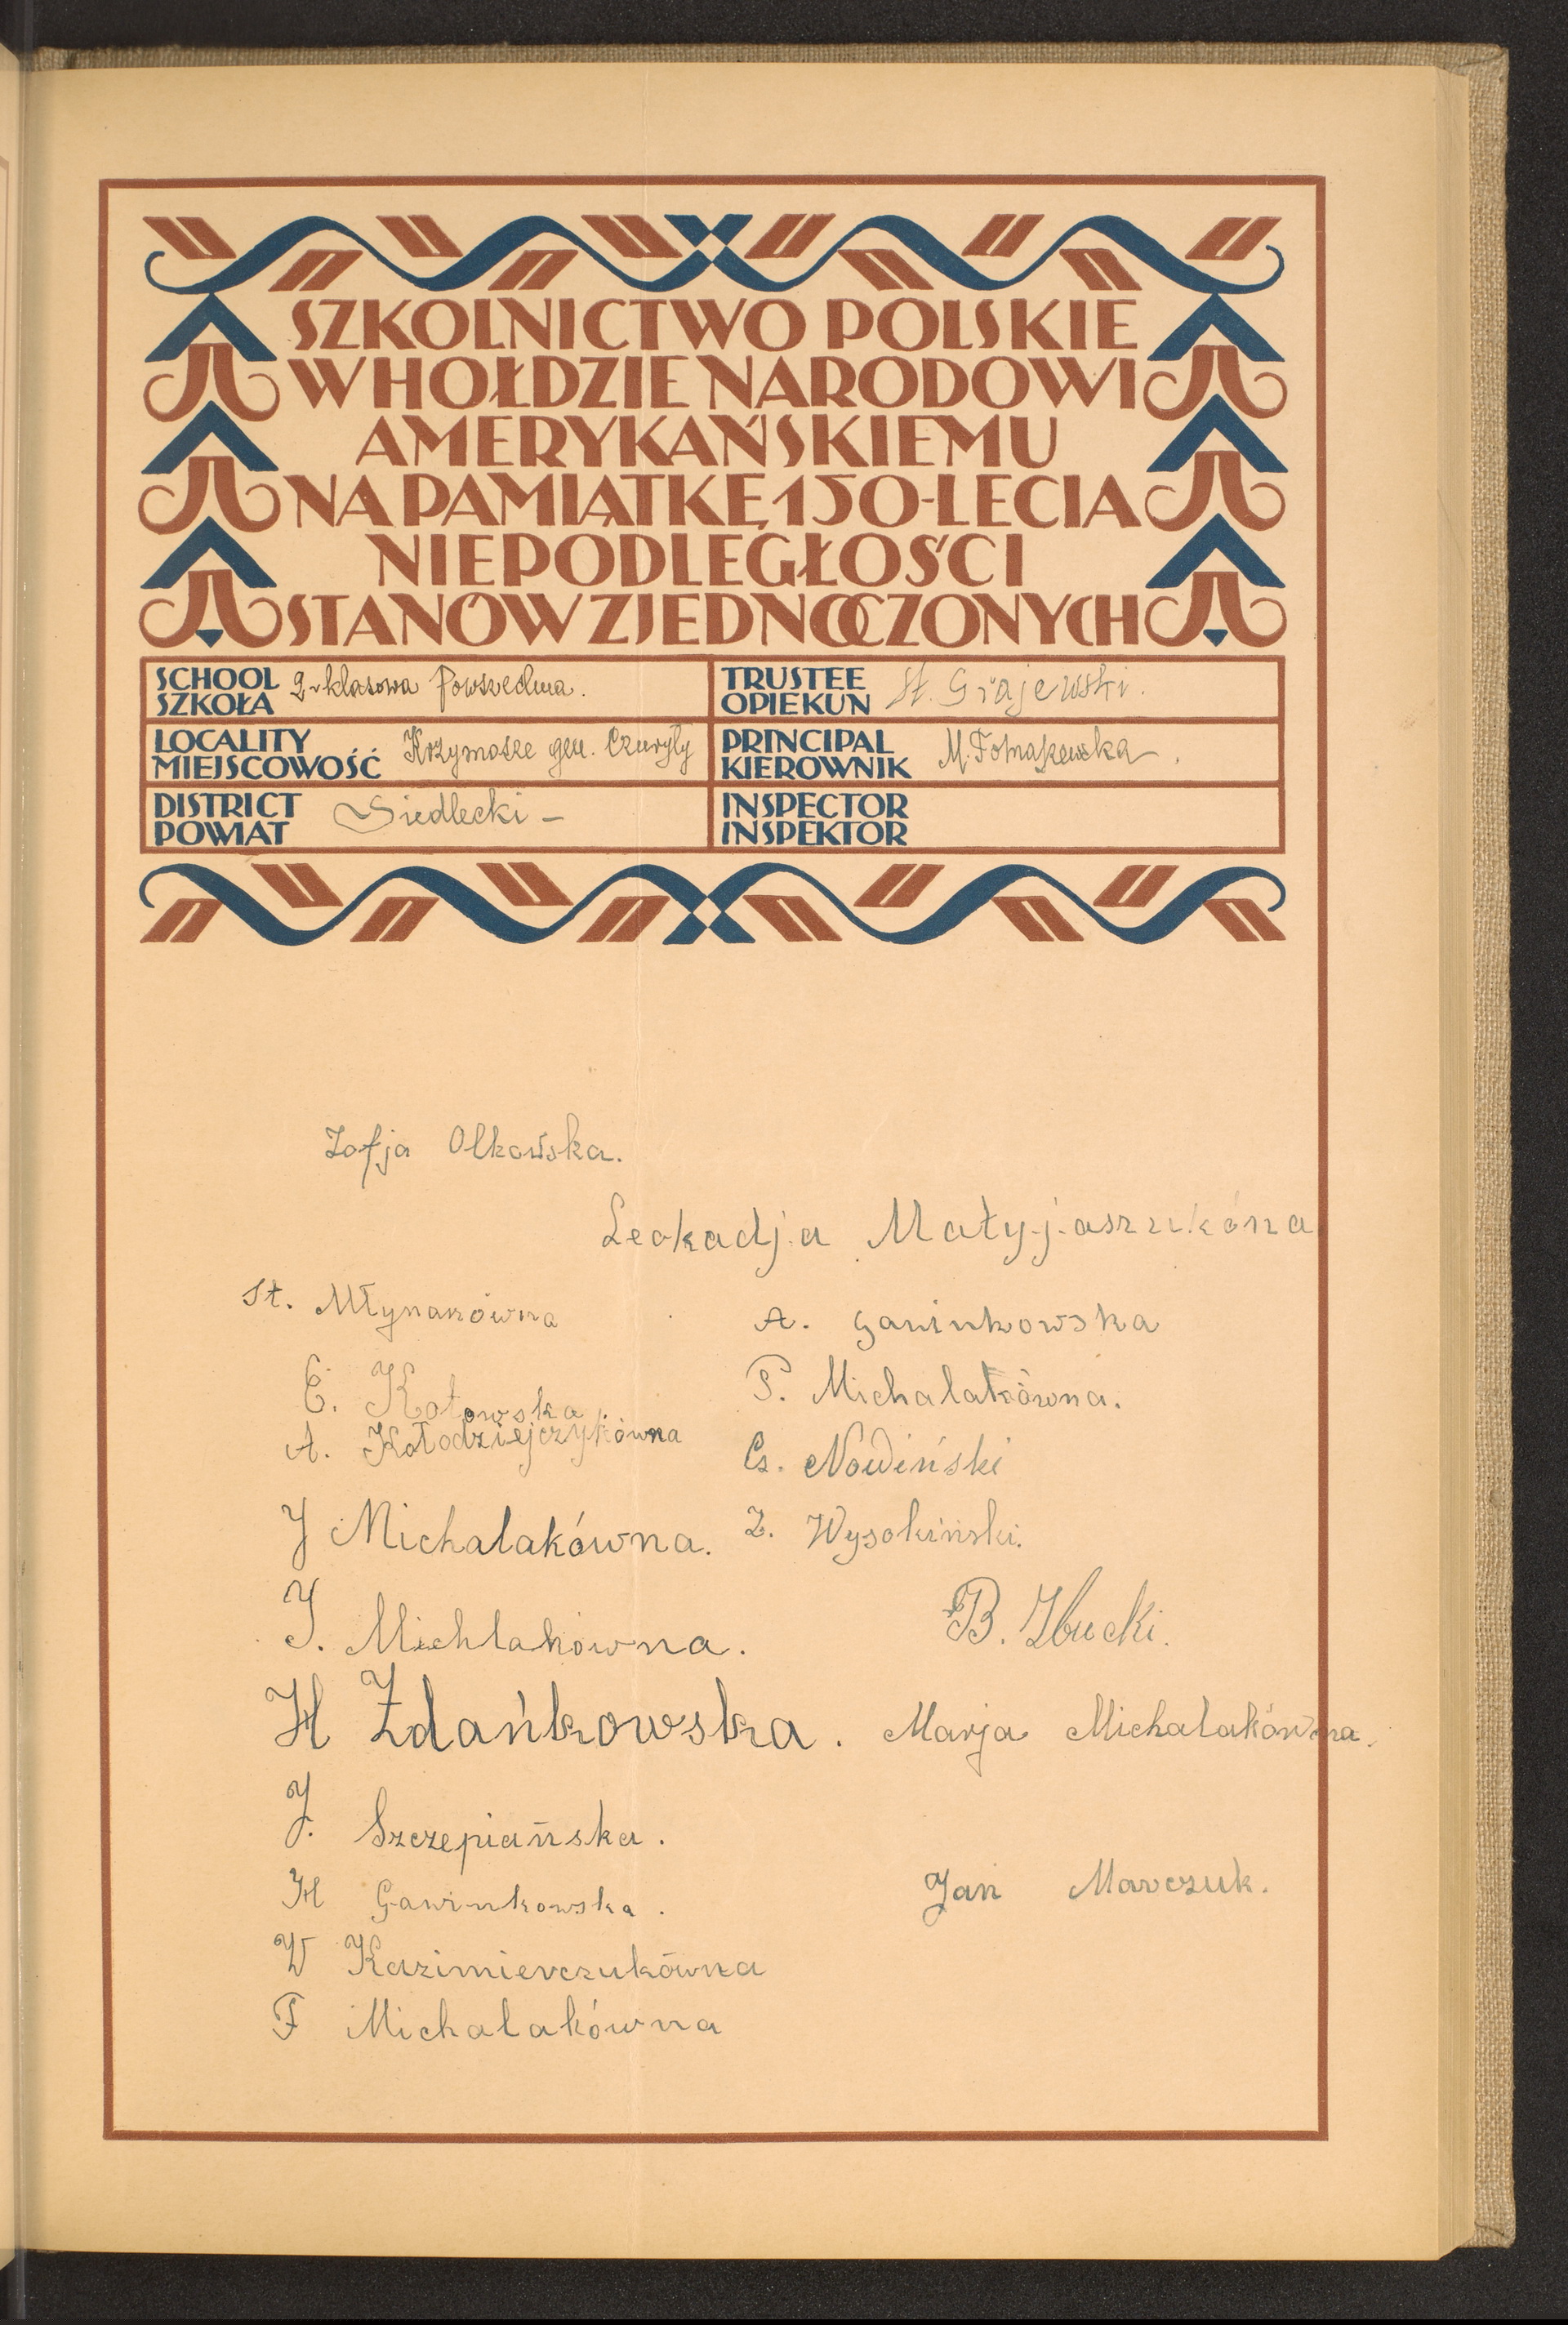 SZKOLNICTWO POLSKIE
W HOŁDZIE NARODOWI
AMERYKAŃSKIEMU
NA PAMIĄTKĘ 150-LECIA
NIEPODLEGŁOŚCI
STANÓW ZJEDNOCZONYCH
SCHOOL
SZKOŁA
2-klasowa Powszechna.
TRUSTEE
OPIEKUN
St. Grajewski.
LOCALITY
MIEJSCOWOŚĆ
Krzymosze gm. Czuryły
PRINCIPAL
KIEROWNIK
M.
DISTRICT
POWIAT
Siedlecki –
INSPECTOR
INSPEKTOR
Zofja Olkowska.
Leokadja Matyjaszukóna
St. Młynarówna
A. Gawinkowska
E. Kotowska
P. Michalakówna.
A. Kołodziejczykówna
Cz. Nowiński
J Michalakówna.
Z. Wysokiński.
J. Michlakówna.
B. Zbucki.
H Zdańkowska.
Marja Michalakówna.
J. Szczepiańska.
H Gawinkowska.
Jan Marczuk.
W Kazimierczukówna
F Michalakówna